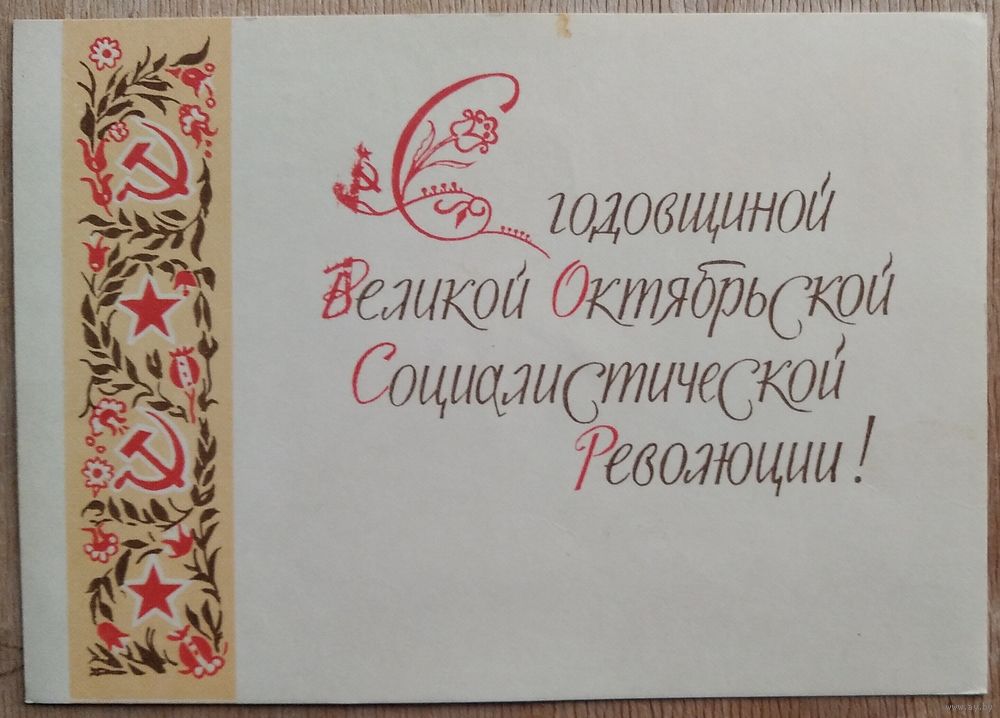 С годовщиной
Великой Октябрьской
Социалистической
Революции!
www.ay.by